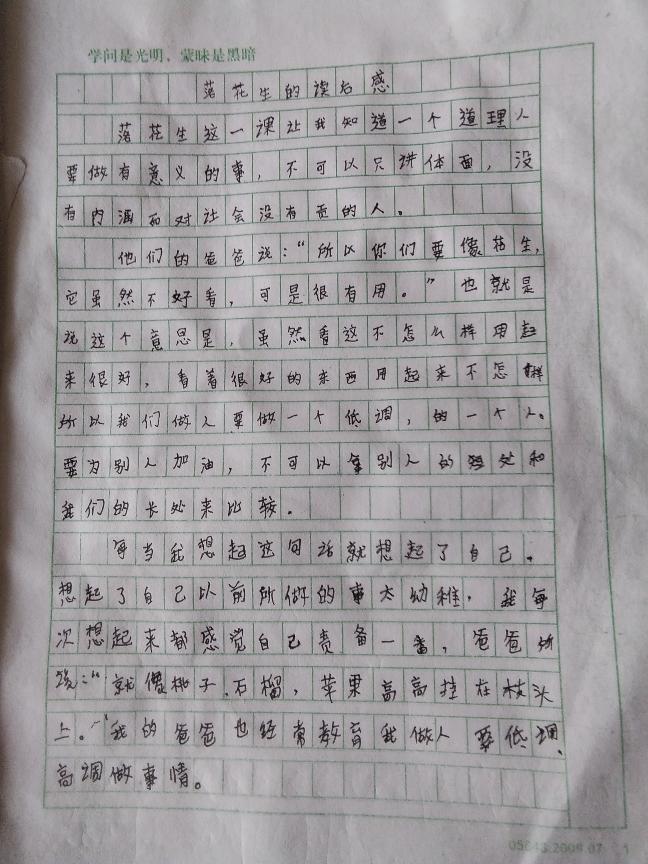 学问是光明，蒙昧是黑暗
落花生的读后感
落花生这一课让我知道一个道理人
要做有意义的事，不可以只讲体面，没
有内涵而对社会没有贡的人。
他们的爸爸说：“所以你们要像花生，
它虽然不好看，可是很有用。”也就是
说这个意思是，虽然看这不怎么样用起
来很好，看着很好的东西用起来不怎样
所以我们做人要做一个低调，的一个人。
要为别人加油，不可以拿别人的短处和
我们的长处来比较。
每当我想起这句话就想起了自己。
想起了自己以前所做的事太幼稚，我每
次想起来都感觉自己责备一番，爸爸所
说：“就像桃子.石榴，苹果高高挂在枝头
上。”我的爸爸也经常教育我做人要低调、
高调做事情。
05643.2009.07 1